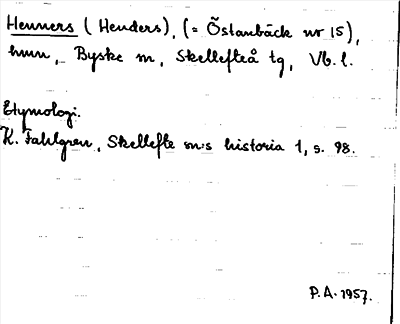 Henners (Henders), (= Östanbäck nr 15),
hmn, Byske sn, Skellefteå tg, Vb. l.
Etymologi.
K. Fahlgren, Skellefte sn:s historia 1, s. 98.
P.A. 1957.